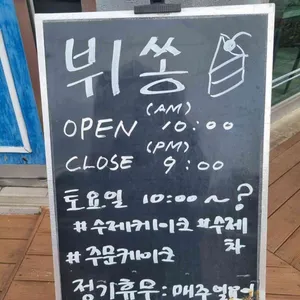 뷔쏭
(AM)
OPEN 10:00
(PM)
CLOSE 9:00
토요일 10:00 ~ ?
#수제케이크 #수제차
#주문케이크
정기휴무: 매주일요일